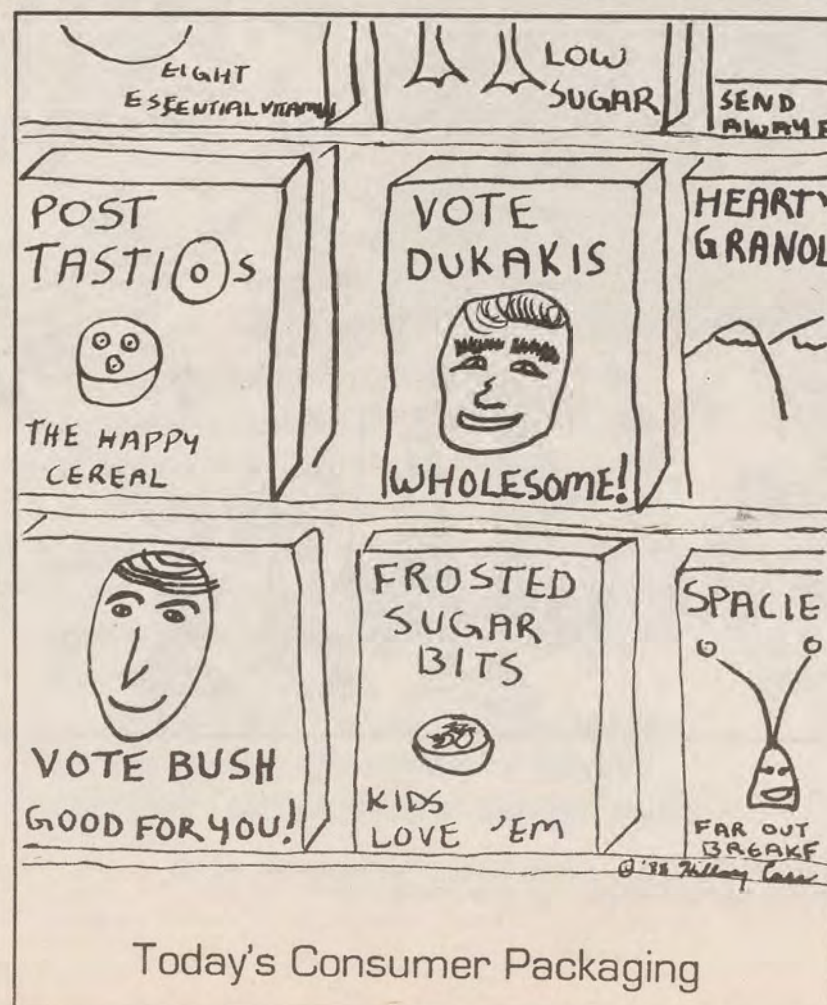 EIGHT
ESSENTIAL VITAMIN
LOW
SUGAR
SEND
AWAY F
POST
TASTIOS
THE HAPPY
CEREAL
VOTE
DUKAKIS
WHOLESOME!
HEARTY
GRANOL
VOTE BUSH
GOOD FOR YOU!
FROSTED
SUGAR
BITS
KIDS
LOVE 'EM
SPACIE
FAR OUT
BREAKF
© '88 Hillary
Today's Consumer Packaging